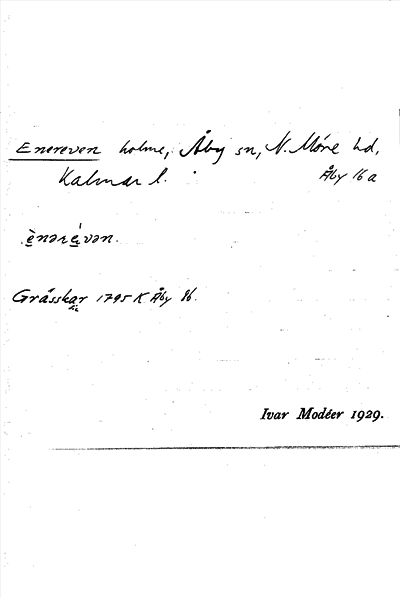 Enereven holme, Åby sn, N. Möre hd,
Kalmar l. Åby 16 a
ènərèvən.
Grässkar 1795 K Åby 86.
Ivar Modéer 1929.